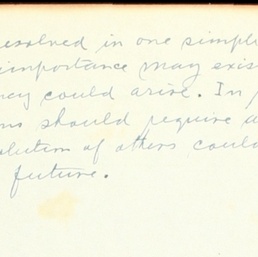 resolved in one simple
importance may exis
ney could arise. In p
ns should require a
olution of others coul
future.